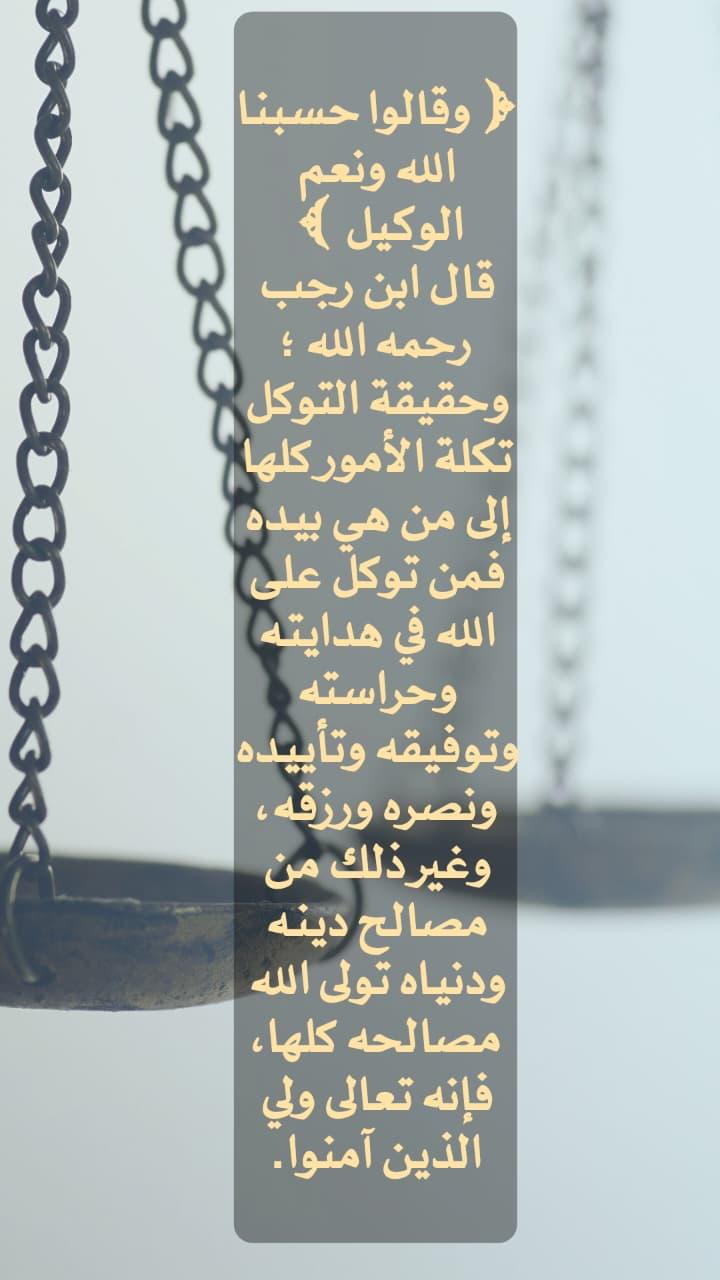 ﴿ وقالوا حسبنا
الله ونعم
الوكيل ﴾
قال ابن رجب
رحمه الله ؛
وحقيقة التوكل
تكلة الأمور كلها
إلى من هي بيده
فمن توكل على
الله في هدايته
وحراسته
وتوفيقه وتأييده
ونصره ورزقه،
وغير ذلك من
مصالح دينه
ودنياه تولى الله
مصالحه كلها،
فإنه تعالى ولي
الذين آمنوا.